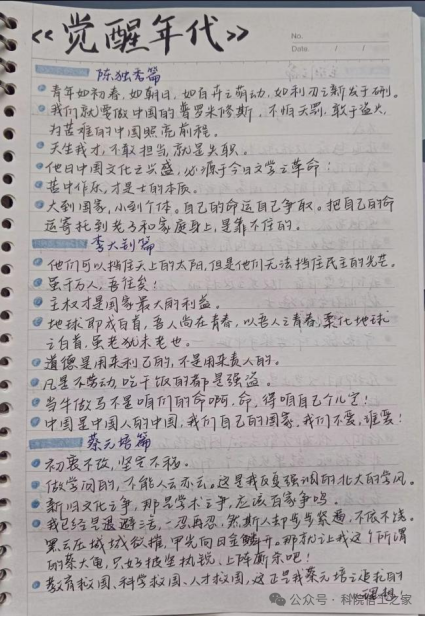 《觉醒年代》
No.
Date / /
陈独秀篇
青年如初春，如朝日，如百卉之萌动，如利刃之新发于硎。
我们就要做中国的普罗米修斯，不怕天罚，敢于盗火，
为苦难的中国照亮前程。
天生我才，不敢担当，就是失职。
他日中国文化之兴盛，必源于今日文学之革命！
苦中作乐，才是士的本版。
大到国家，小到个体。自己的命运自己争取。把自己的命
运寄托到老子和家庭身上，是靠不住的。
李大钊篇
他们可以挡住天上的太阳，但是他们无法挡住民主的光芒。
虽千万人，吾往矣！
主权才是国家最大的利益。
地球即成白首，吾人尚在青春，以吾人之青春，柔化地球
之白首，虽老犹未老也。
道德是用来利己的，不是用来责人的。
凡是不劳动，吃干饭的都是强盗。
当牛做马不是咱们的命啊，命，得咱自己个儿定！
中国是中国人的中国，我们自己的国家，我们不爱，谁爱！
蔡元培篇
初衷不改，坚定不移。
做学问的，不能人云亦云。这是我反复强调的北大的学风。
新旧文化之争，那是学术之争，应该百家争鸣。
我已经是退避三舍，一忍再忍，然斯人却步步紧逼，不依不饶。
黑云压城城欲摧，甲光向日金鳞开。那就让我这个所谓
的蔡大龟，只好披坚执锐、上阵厮杀吧！
教育救国、科学救国、人才救国，这正是我蔡元培之追求的
理想！
公众号·科院信工之家